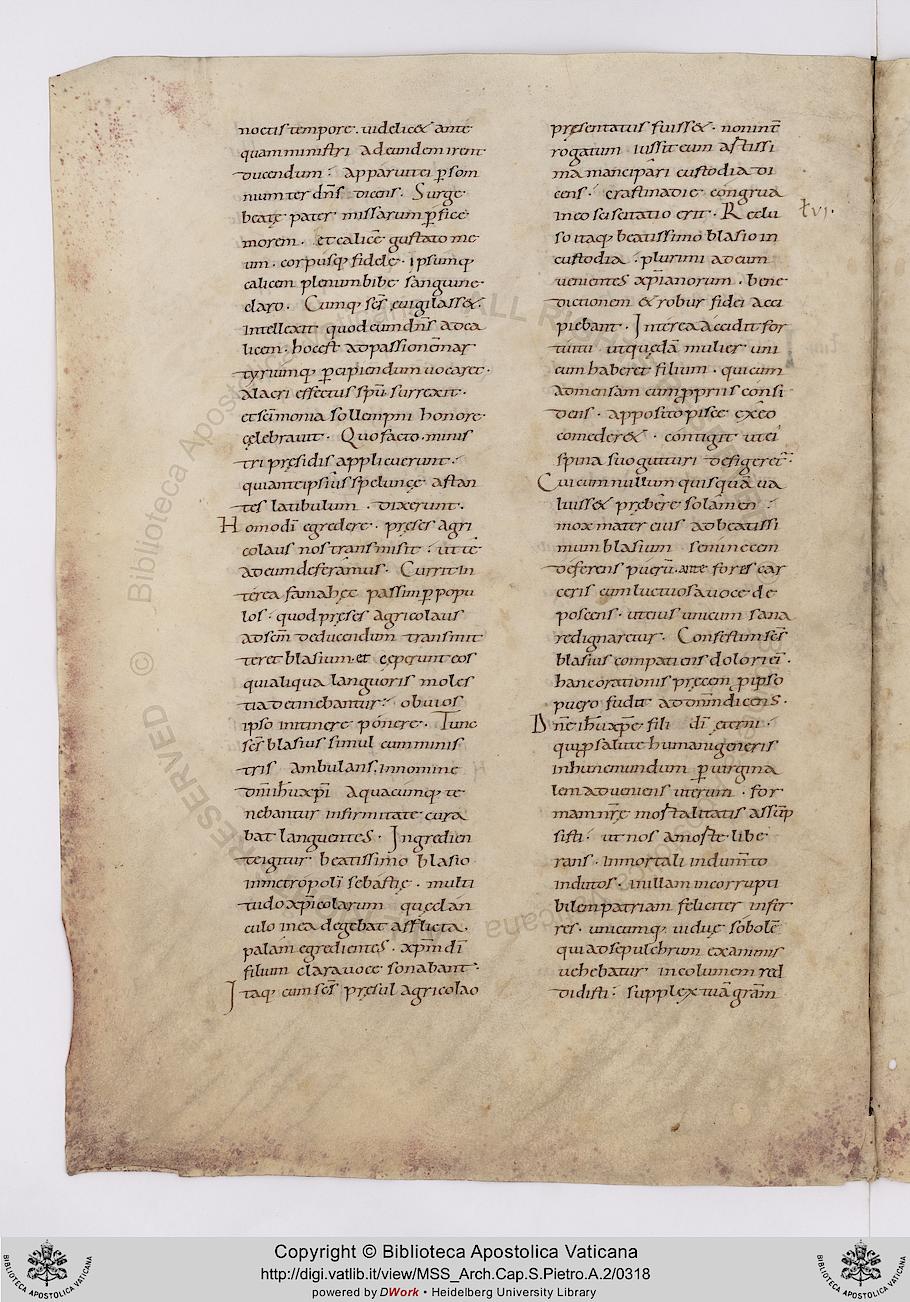 noctis tempore. uidelic& ante
quam ministri ad eundem irent
ducendum: apparuit ei p̱ som
num ter dn̄s dicens. Surge
beatę pater missarum p̱fice
morem. et calicē gustato me
um. corpusq; fidele. ipsumq;
calicem plenum bibe sanguine
claro. Cumq; scs̄ euigilass&.
intellexit quod eum dn̄s ad ca
licem. hoc est ad passionē mar
tyriumq; p̱cipiendum uocaret.
alacri effectus spū. surrexit.
et scīmonia sollempni honore.
cęlebrauit. Quo facto. minis
tri pręsidis applicuerunt:
qui ante ipsius speluncę astan
tes latibulum. dixerunt.
Homo dī egredere. pręses agri
colaus nos transmisit: ut tē
ad eum deferamus. Currit in
terea fama hęc passim p̱ popu
los. quod pręses agricolaus
ad scm̄ deducendum transmit
teret blasium. et cęperunt eos
qui aliqua languoris moles
tia detinebantur: obuios
ipso in itinere ponere. Tunc
scs̄ blasius simul cum minis
tris ambulans. in nomine
dn̄i ih̄u xp̄i a quacumq; te
nebantur infirmitate cura
bat languentes. Ingredien
te igitur beatissimo blasio
in metropoli sebastię. multi
tudo xp̄icolarum quę clan
culo in ea degebat afflicta.
palam egredientes. xp̄m dī
filium clara uoce sonabant.
Itaq; cum scs̄ pręsul agricolao
pręsentatus fuiss&. non int̄
rogatum iussit eum astissi
ma mancipari custodia di
cens. crastina die congrua
in eo sciscitatio erit. Reclu
ł vj.
so itaq; beatissimo blasio in
custodia: plurimi ad eum
uenientes xp̄ianorum. bene
dictionem & robur fidei acci
piebant. Interea accidit for
tuitu ut quędā mulier uni
cum haberet filium. qui cum
ad mensam cum p̱priis consi
dens. apposito pisce ex eo
comeder&. contigit ut ei
spina suo gutturi defigeret.
Cui cum nullum quisquā ua
luiss& prębere solamen:
mox mater eius ad beatissi
mum blasium seminecem
deferens puerū. ante fores car
ceris cum luctuosa uoce de
poscens. ut eius unicum sana
re dignaretur. Confestim scs̄
blasius compatiens dolori eī.
hanc orationis pręcem p̱ ipso
puero fudit ad dn̄m dicens.
Dn̄e ih̄u xp̄e fili dī ęterni.
qui p̱ salute humani generis
in hunc mundum p̱ uirgina
lem adueniens uterum. for
mam nr̄ę mortalitatis assūp
sisti. ut nos a morte libe
rans. inmortali indumto
indutos. in illam incorrupti
bilem patriam feliciter infer
res. unicumq; uiduę sobolē
qui ad sepulchrum exanimis
uehebatur incolumem red
didisti: supplex tuā gratiam
Copyright © Biblioteca Apostolica Vaticana
http://digi.vatlib.it/view/MSS_Arch.Cap.S.Pietro.A.2/0318
powered by DWork • Heidelberg University Library